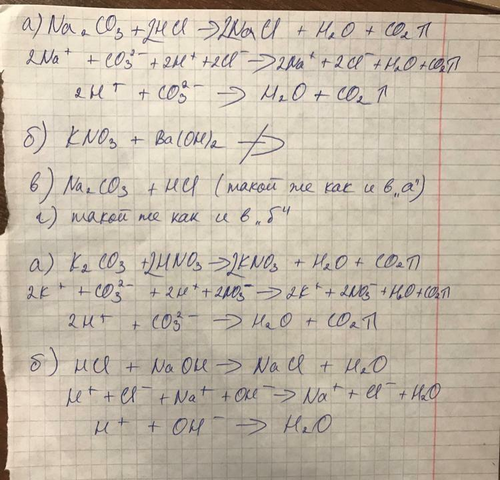 а) Na₂CO₃ + 2HCl → 2NaCl + H₂O + CO₂П
2Na⁺ + CO₃²⁻ + 2H⁺ + 2Cl⁻ → 2Na⁺ + 2Cl⁻ + H₂O + CO₂П
2H⁺ + CO₃²⁻ → H₂O + CO₂П
б) KNO₃ + Ba(OH)₂ ↛
в) Na₂CO₃ + HCl (такой же как и в „а")
г) такой же как и в „б"
а) K₂CO₃ + 2HNO₃ → 2KNO₃ + H₂O + CO₂П
2K⁺ + CO₃²⁻ + 2H⁺ + 2NO₃⁻ → 2K⁺ + 2NO₃⁻ + H₂O + CO₂П
2H⁺ + CO₃²⁻ → H₂O + CO₂П
б) HCl + NaOH → NaCl + H₂O
H⁺ + Cl⁻ + Na⁺ + OH⁻ → Na⁺ + Cl⁻ + H₂O
H⁺ + OH⁻ → H₂O